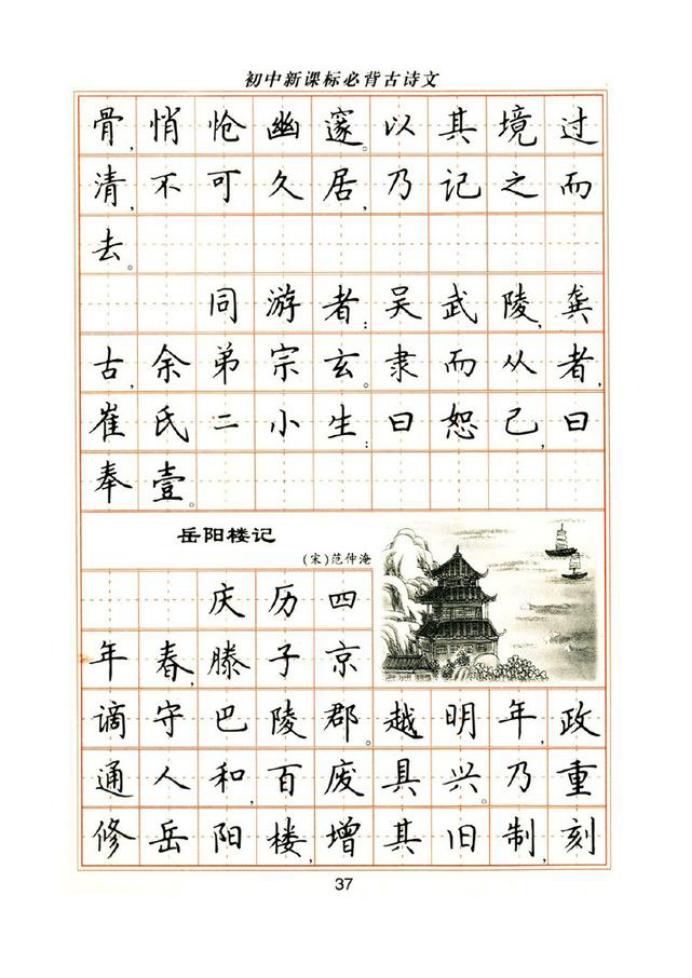 初中新课标必背古诗文
骨,悄怆幽邃。以其境过
清,不可久居,乃记之而
去。
同游者:吴武陵,龚
古,余弟宗玄。隶而从者,
崔氏二小生:曰恕己,曰
奉壹。
岳阳楼记
(宋)范仲淹
庆历四
年春,滕子京
谪守巴陵郡。越明年,政
通人和,百废具兴。乃重
修岳阳楼,增其旧制,刻
37